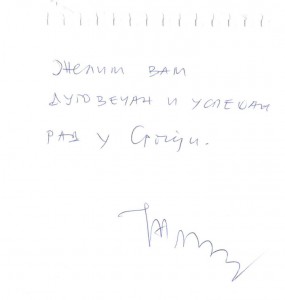 Желим вам
дуговечан и успешан
рад у Србији.